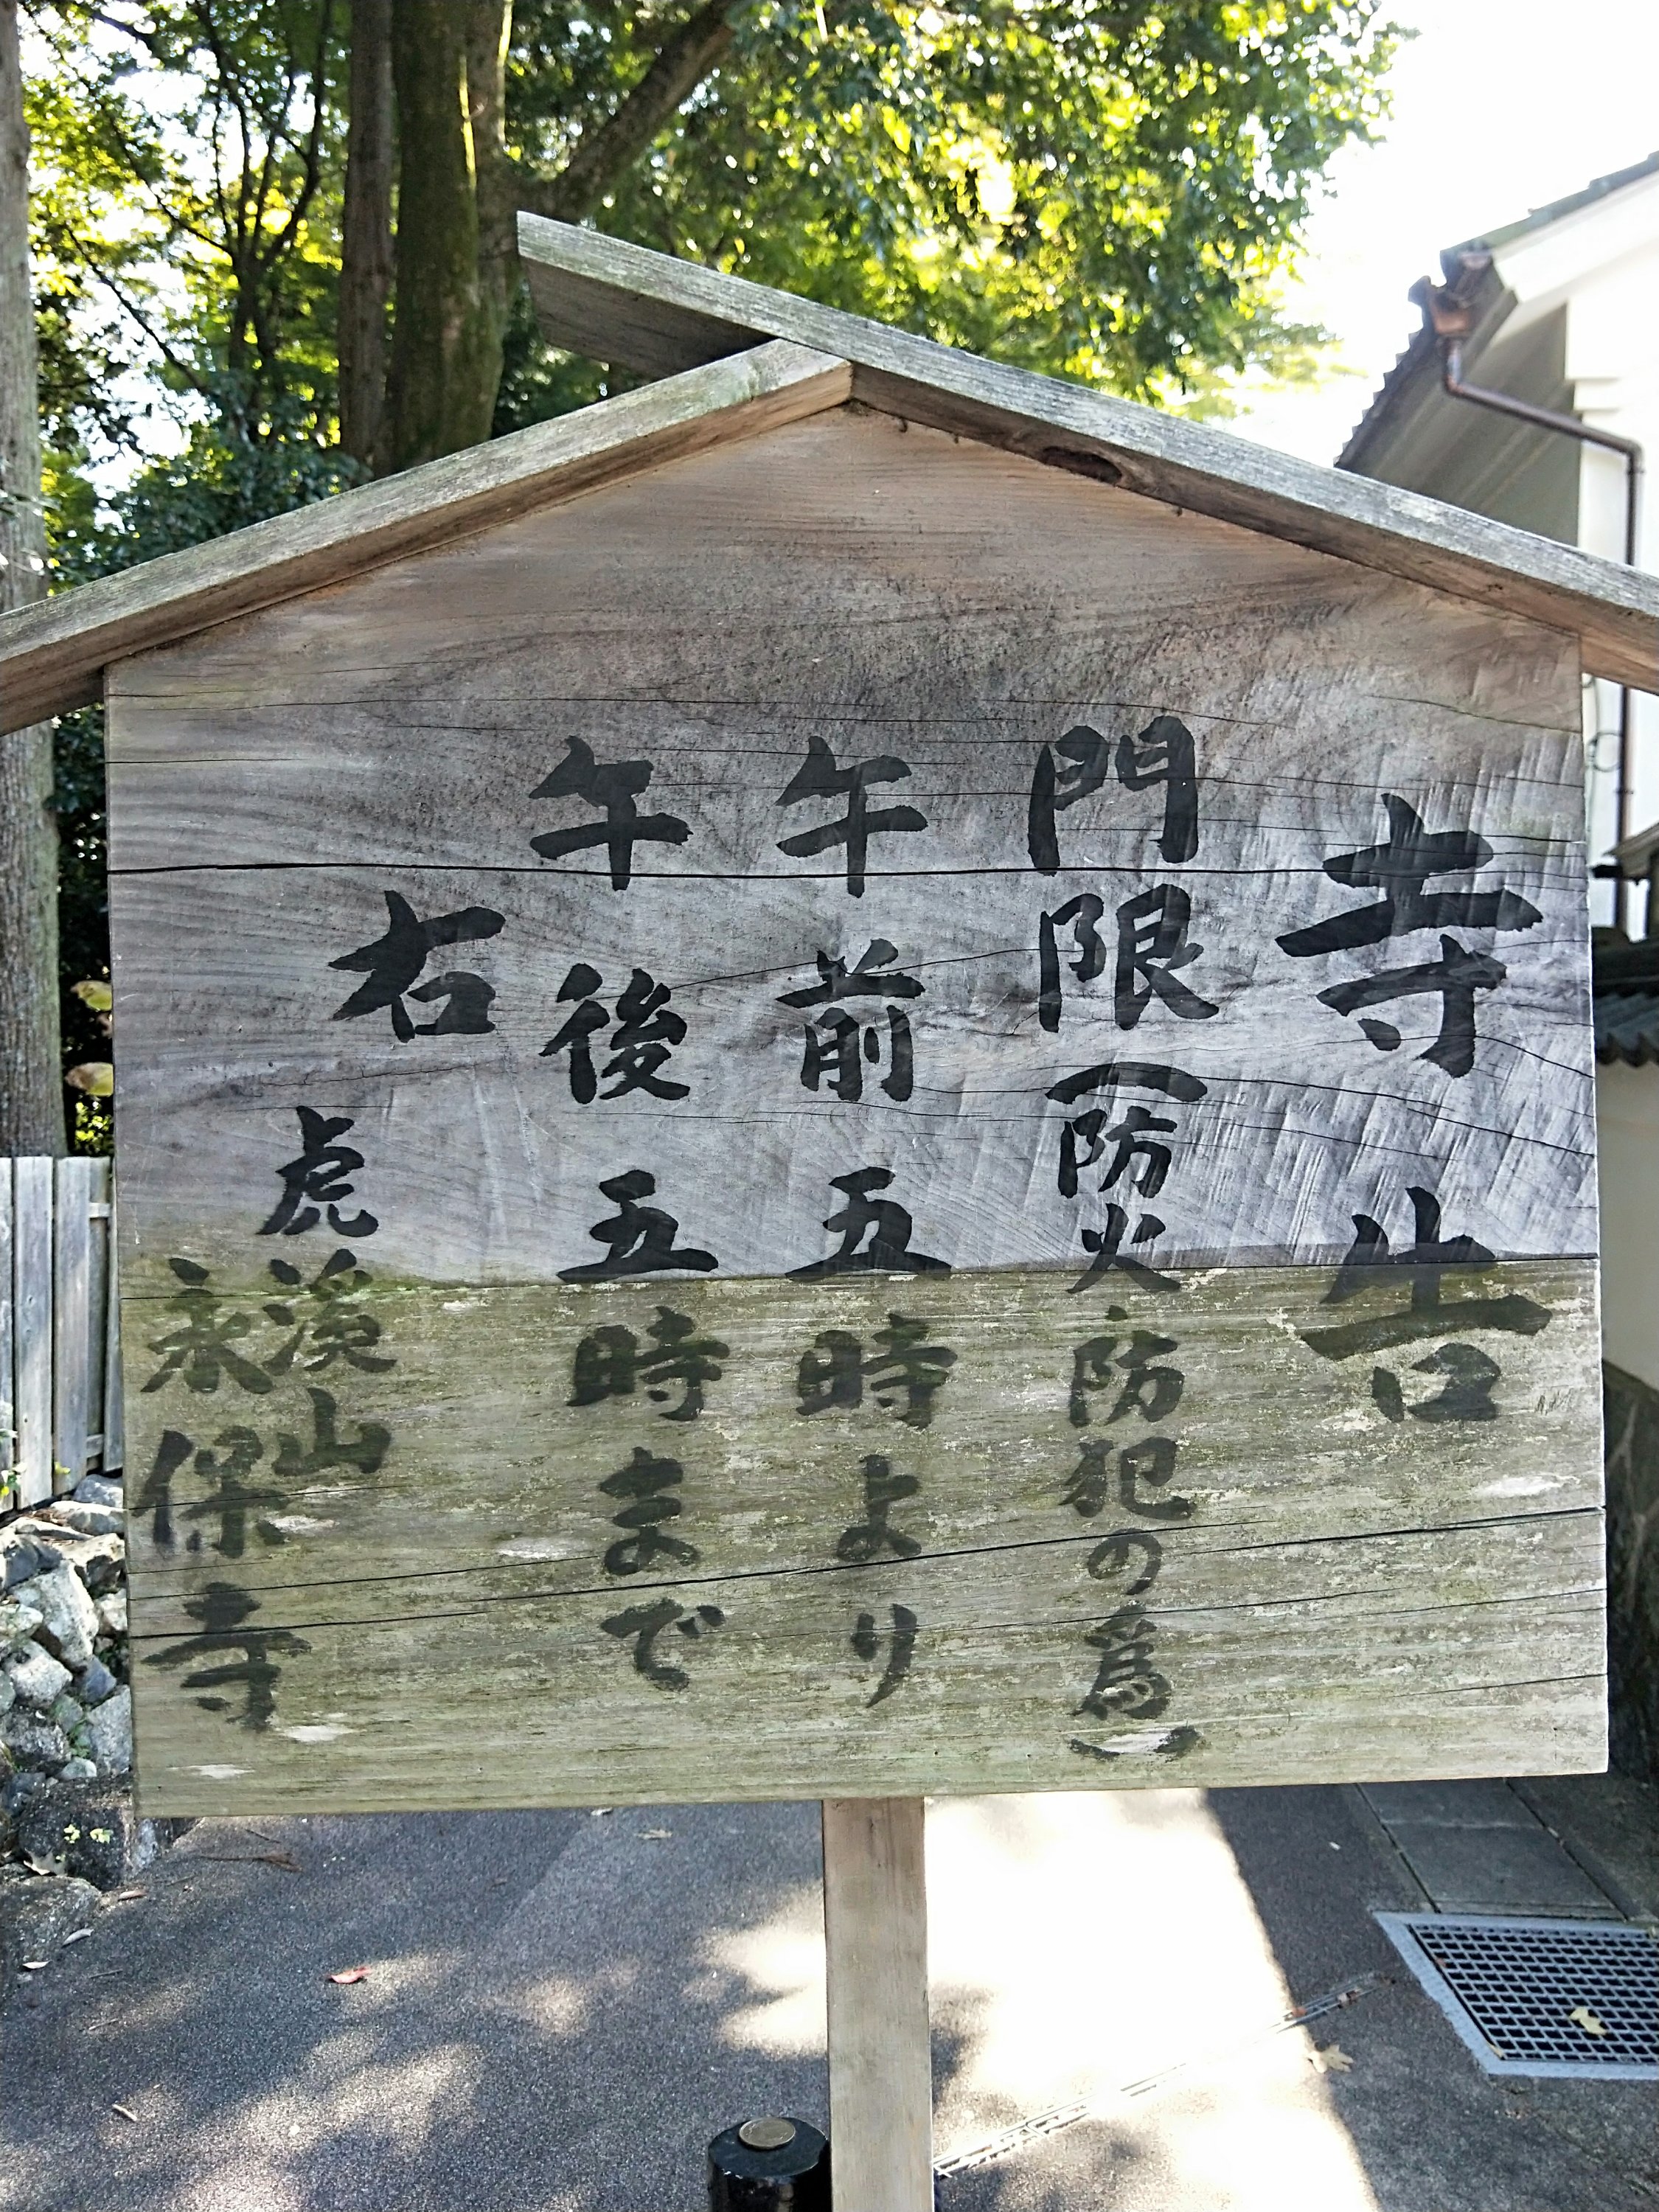 寺告
門限(防火、防犯の為)
午前五時より
午後五時まで
右
虎溪山
永保寺